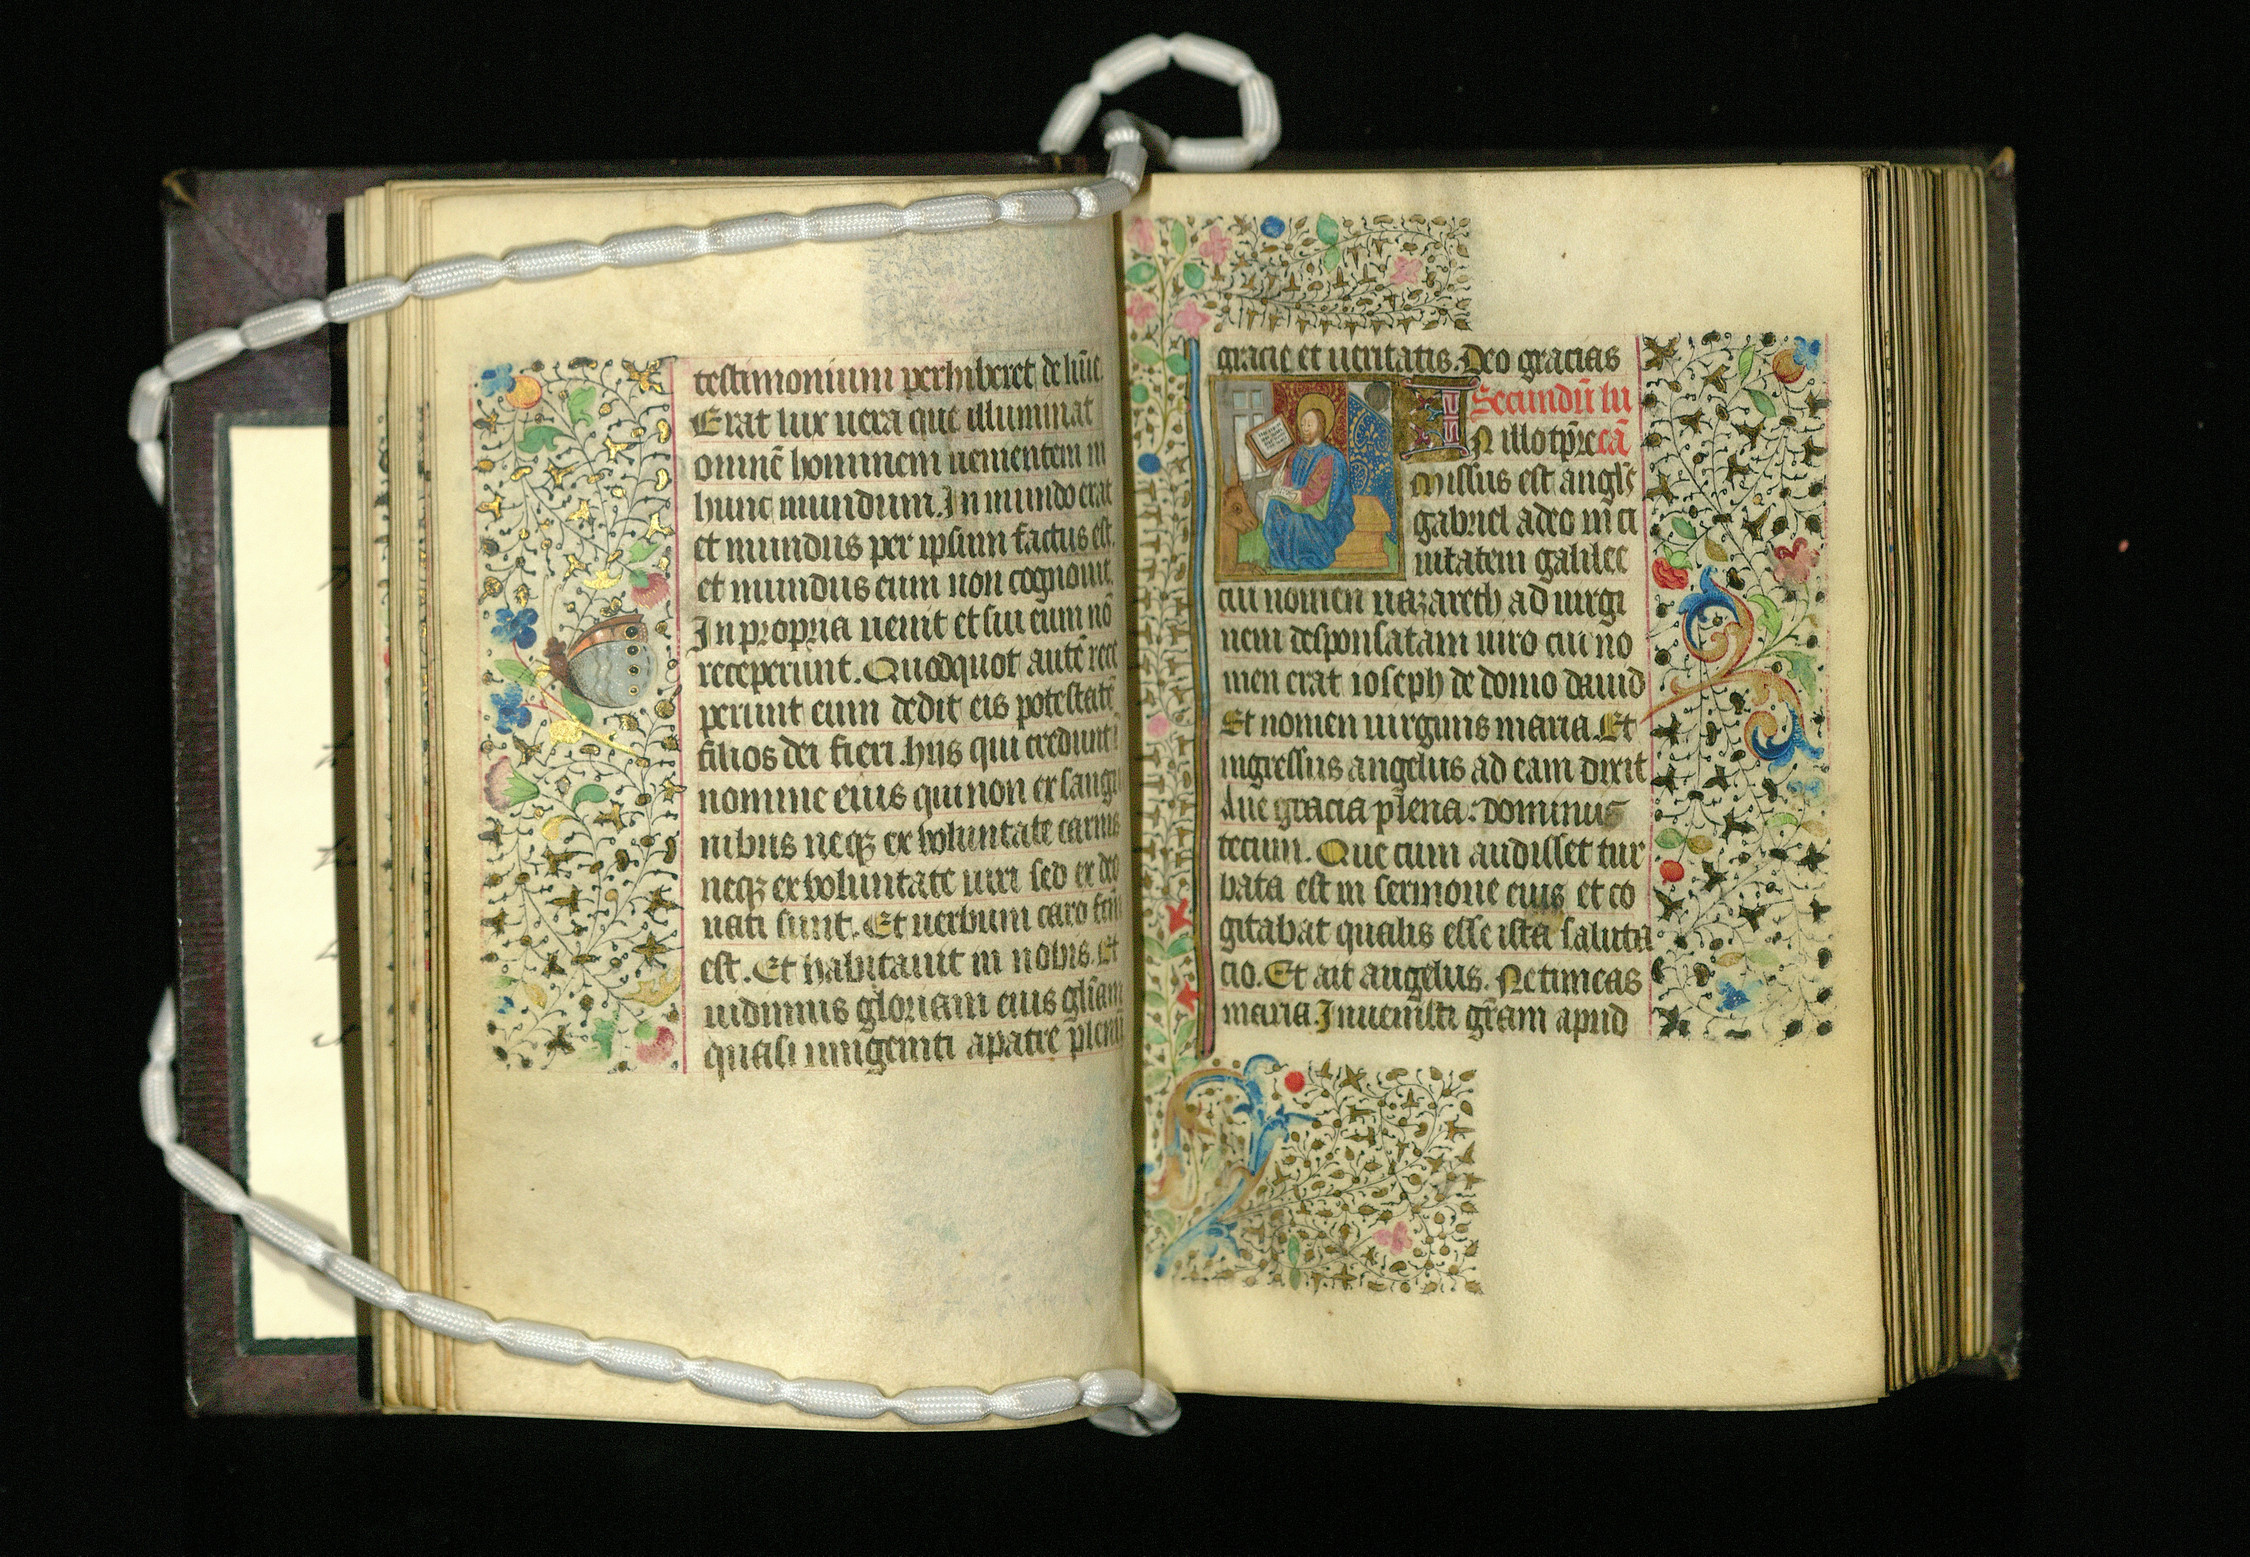 testimonium perhiberet de lūīe.
Erat lux uera que illuminat
omnē hominem uenientem in
hunc mundum. In mundo erat
et mundus per ipsum factus est.
et mundus eum non cognouit.
In propria uenit et sui eum nō
receperunt. Quodquot autē rece
perunt eum dedit eis potestatē
filios dei fieri. hijs qui credunt ī
nomine eius qui non ex sangui
nibus neqꝫ ex voluntate carnis
neqꝫ ex voluntate uiri sed ex deo
nati sunt. Et uerbum caro fc̄m
est. Et habitauit in nobis. Et
uidimus gloriam eius gl̄iam
quasi unigeniti a patre plenū
gracie et ueritatis. Deo gracias
Secundū lu
IN illo tp̄re cā
missus est angl̄s
gabriel a deo in ci
uitatem galilee
cui nomen nazareth ad uirgi
nem desponsatam uiro cui no
men erat ioseph de domo dauid
Et nomen uirginis maria. Et
ingressus angelus ad eam dixit
Aue gracia plena: dominus
tecum. Que cum audisset tur
bata est in sermone eius et co
gitabat qualis esse ista saluta
cio. Et ait angelus. Ne timeas
maria. Inuenisti gr̄am apud